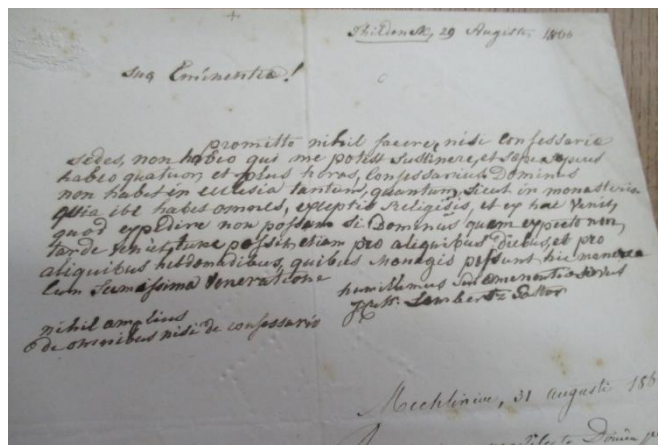 29 Augisti, 1860
sua Eminentia!
promitto nihil facere, nisi Confessario
sedes, non habeo qui me potest Sustinere, et sepe sepius
habeo quatuor, et plus horas, Confessarius Dominus
non habet in ecclesia tantum, quantum, sicut in monasterio
quia ibi habet omnes, exceptis Religisis, et ex hac venit,
quod expedire non possum si Dominus quem expecto non
tarde veniet, tunc possit, etiam pro aliquibus diebus, et pro
aliquibus hebdomadibus, quibus possunt, hic manere
Cum Sumassima Veneratione
humillimus
Lambertz Pastor
nihil amplius
de omnibus nisi de confessario
Mechliniae, 31 augusti 186